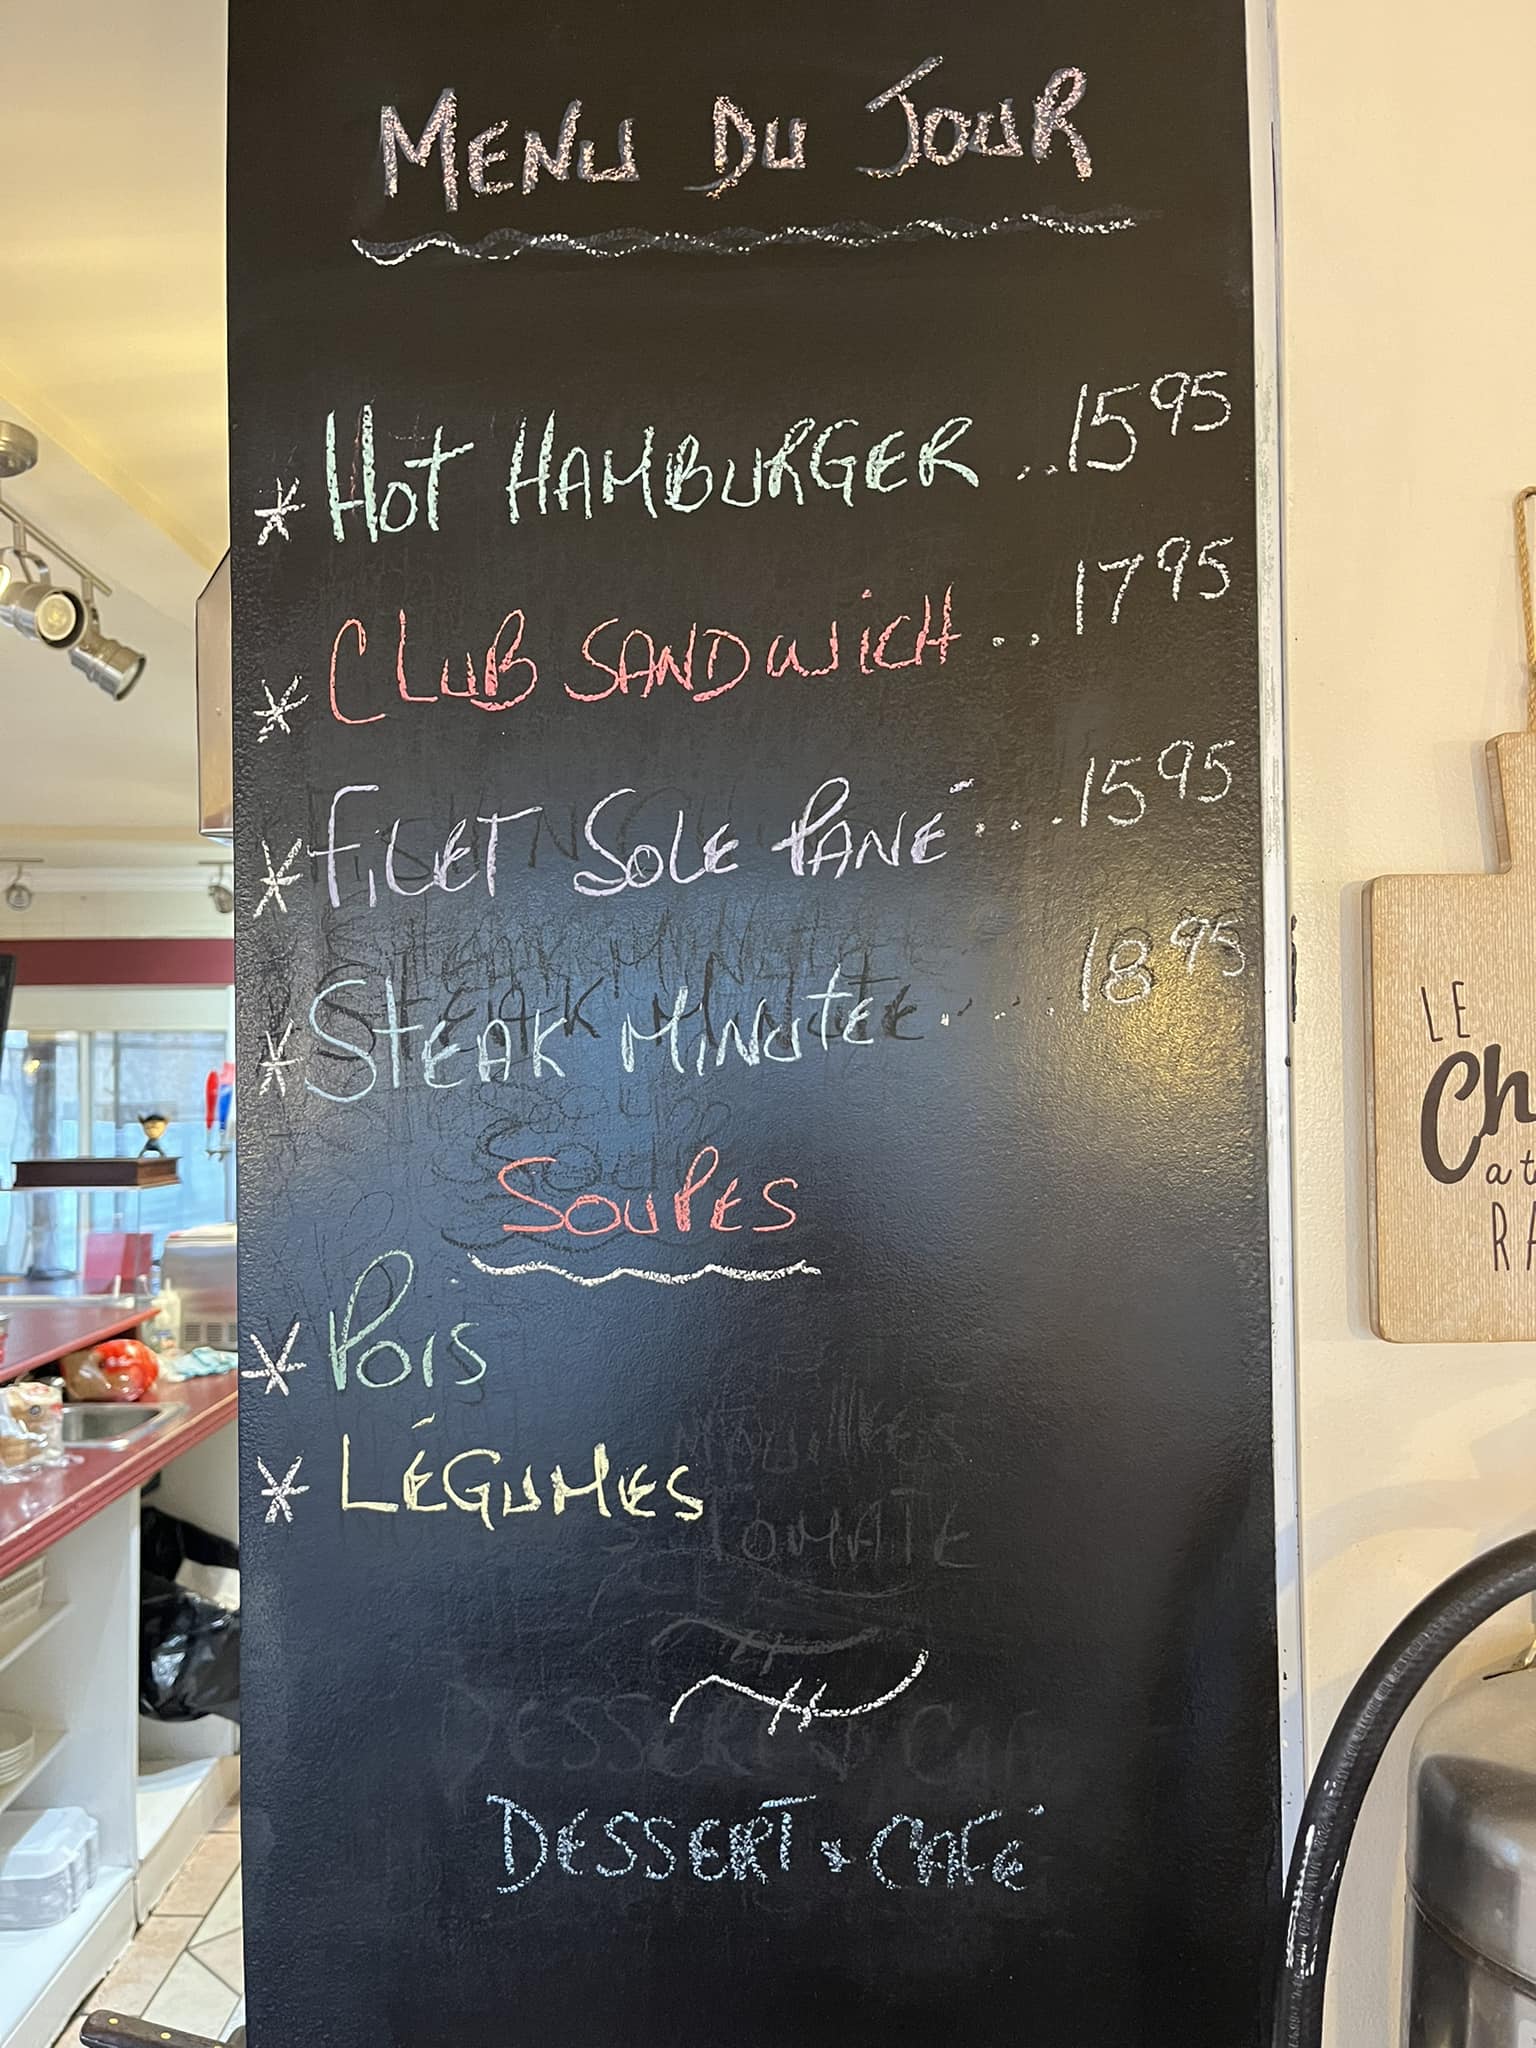 MENU DU JOUR
* HOT HAMBURGER .. 15 95
* CLUB SANDWICH .. 17 95
* FILET SOLE PANÉ ... 15 95
* STEAK MINUTE .... 18 95
SOUPES
* POIS
* LÉGUMES
DESSERT + CAFÉ
LE